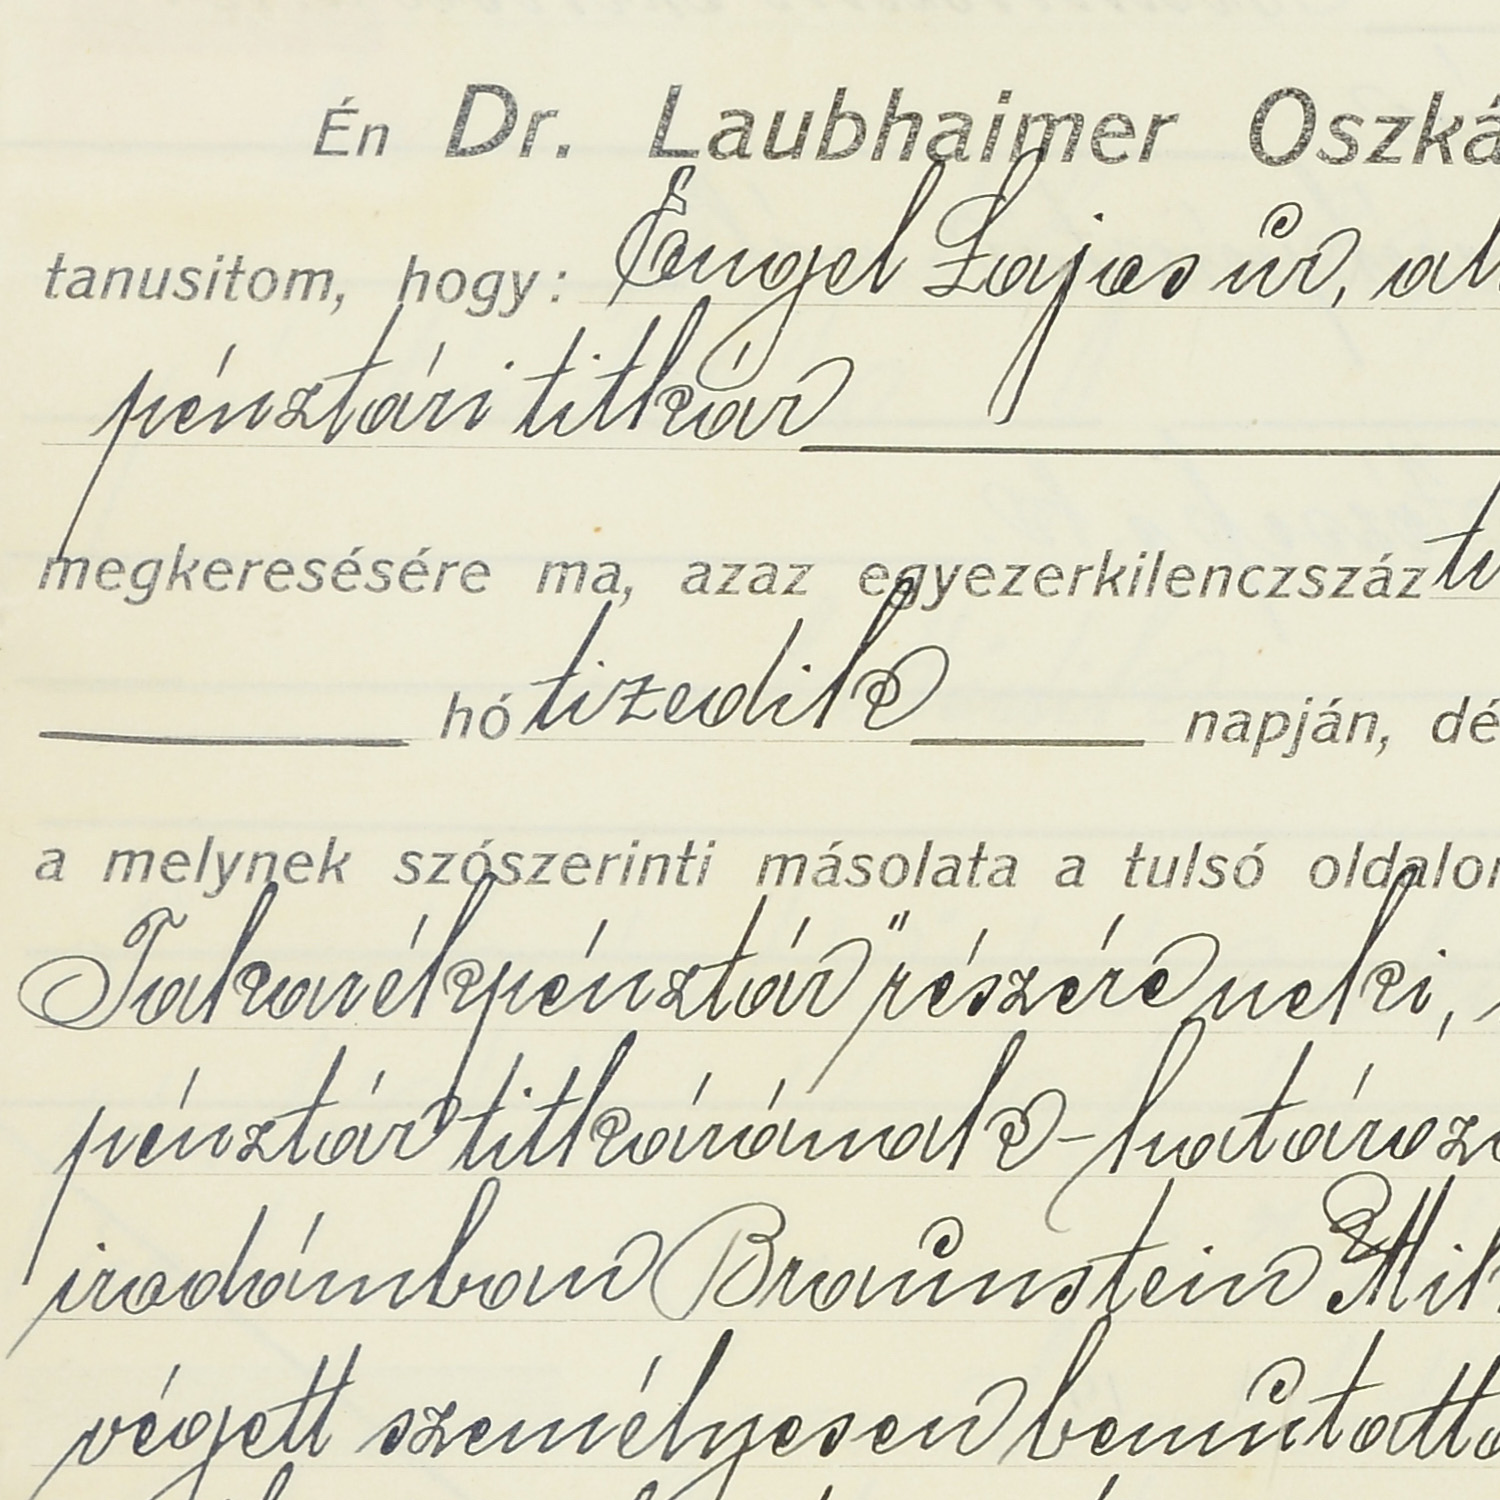 Én Dr. Laubhaimer Oszká
tanusitom, hogy: Engel Lajos úr, al
pénztári titkár
megkeresésére ma, azaz egyezerkilenczszáz ti
hó tizedik napján, dé
a melynek szószerinti másolata a tulsó oldalon
Takarékpénztár" részére neki,
pénztár titkárának - határozo
irodámban Braunstein Mik
végett személyesen bemutatta